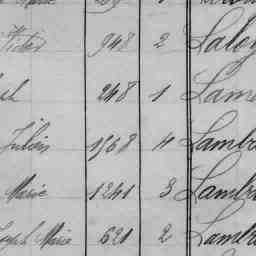 Victor 948 2 Laloy
248 1 Lam
Julien 1568 4 Lamb
Marie 1241 3 Lamb
Joseph Marie 621 2 Lamb